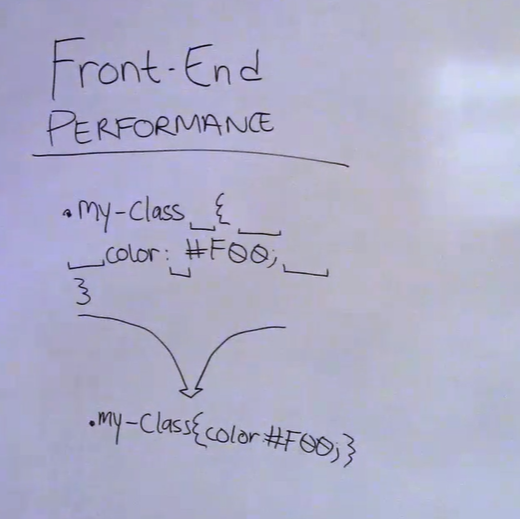 Front-End
PERFORMANCE
.my-Class {
color: #F00;
}
.my-Class{color:#F00;}